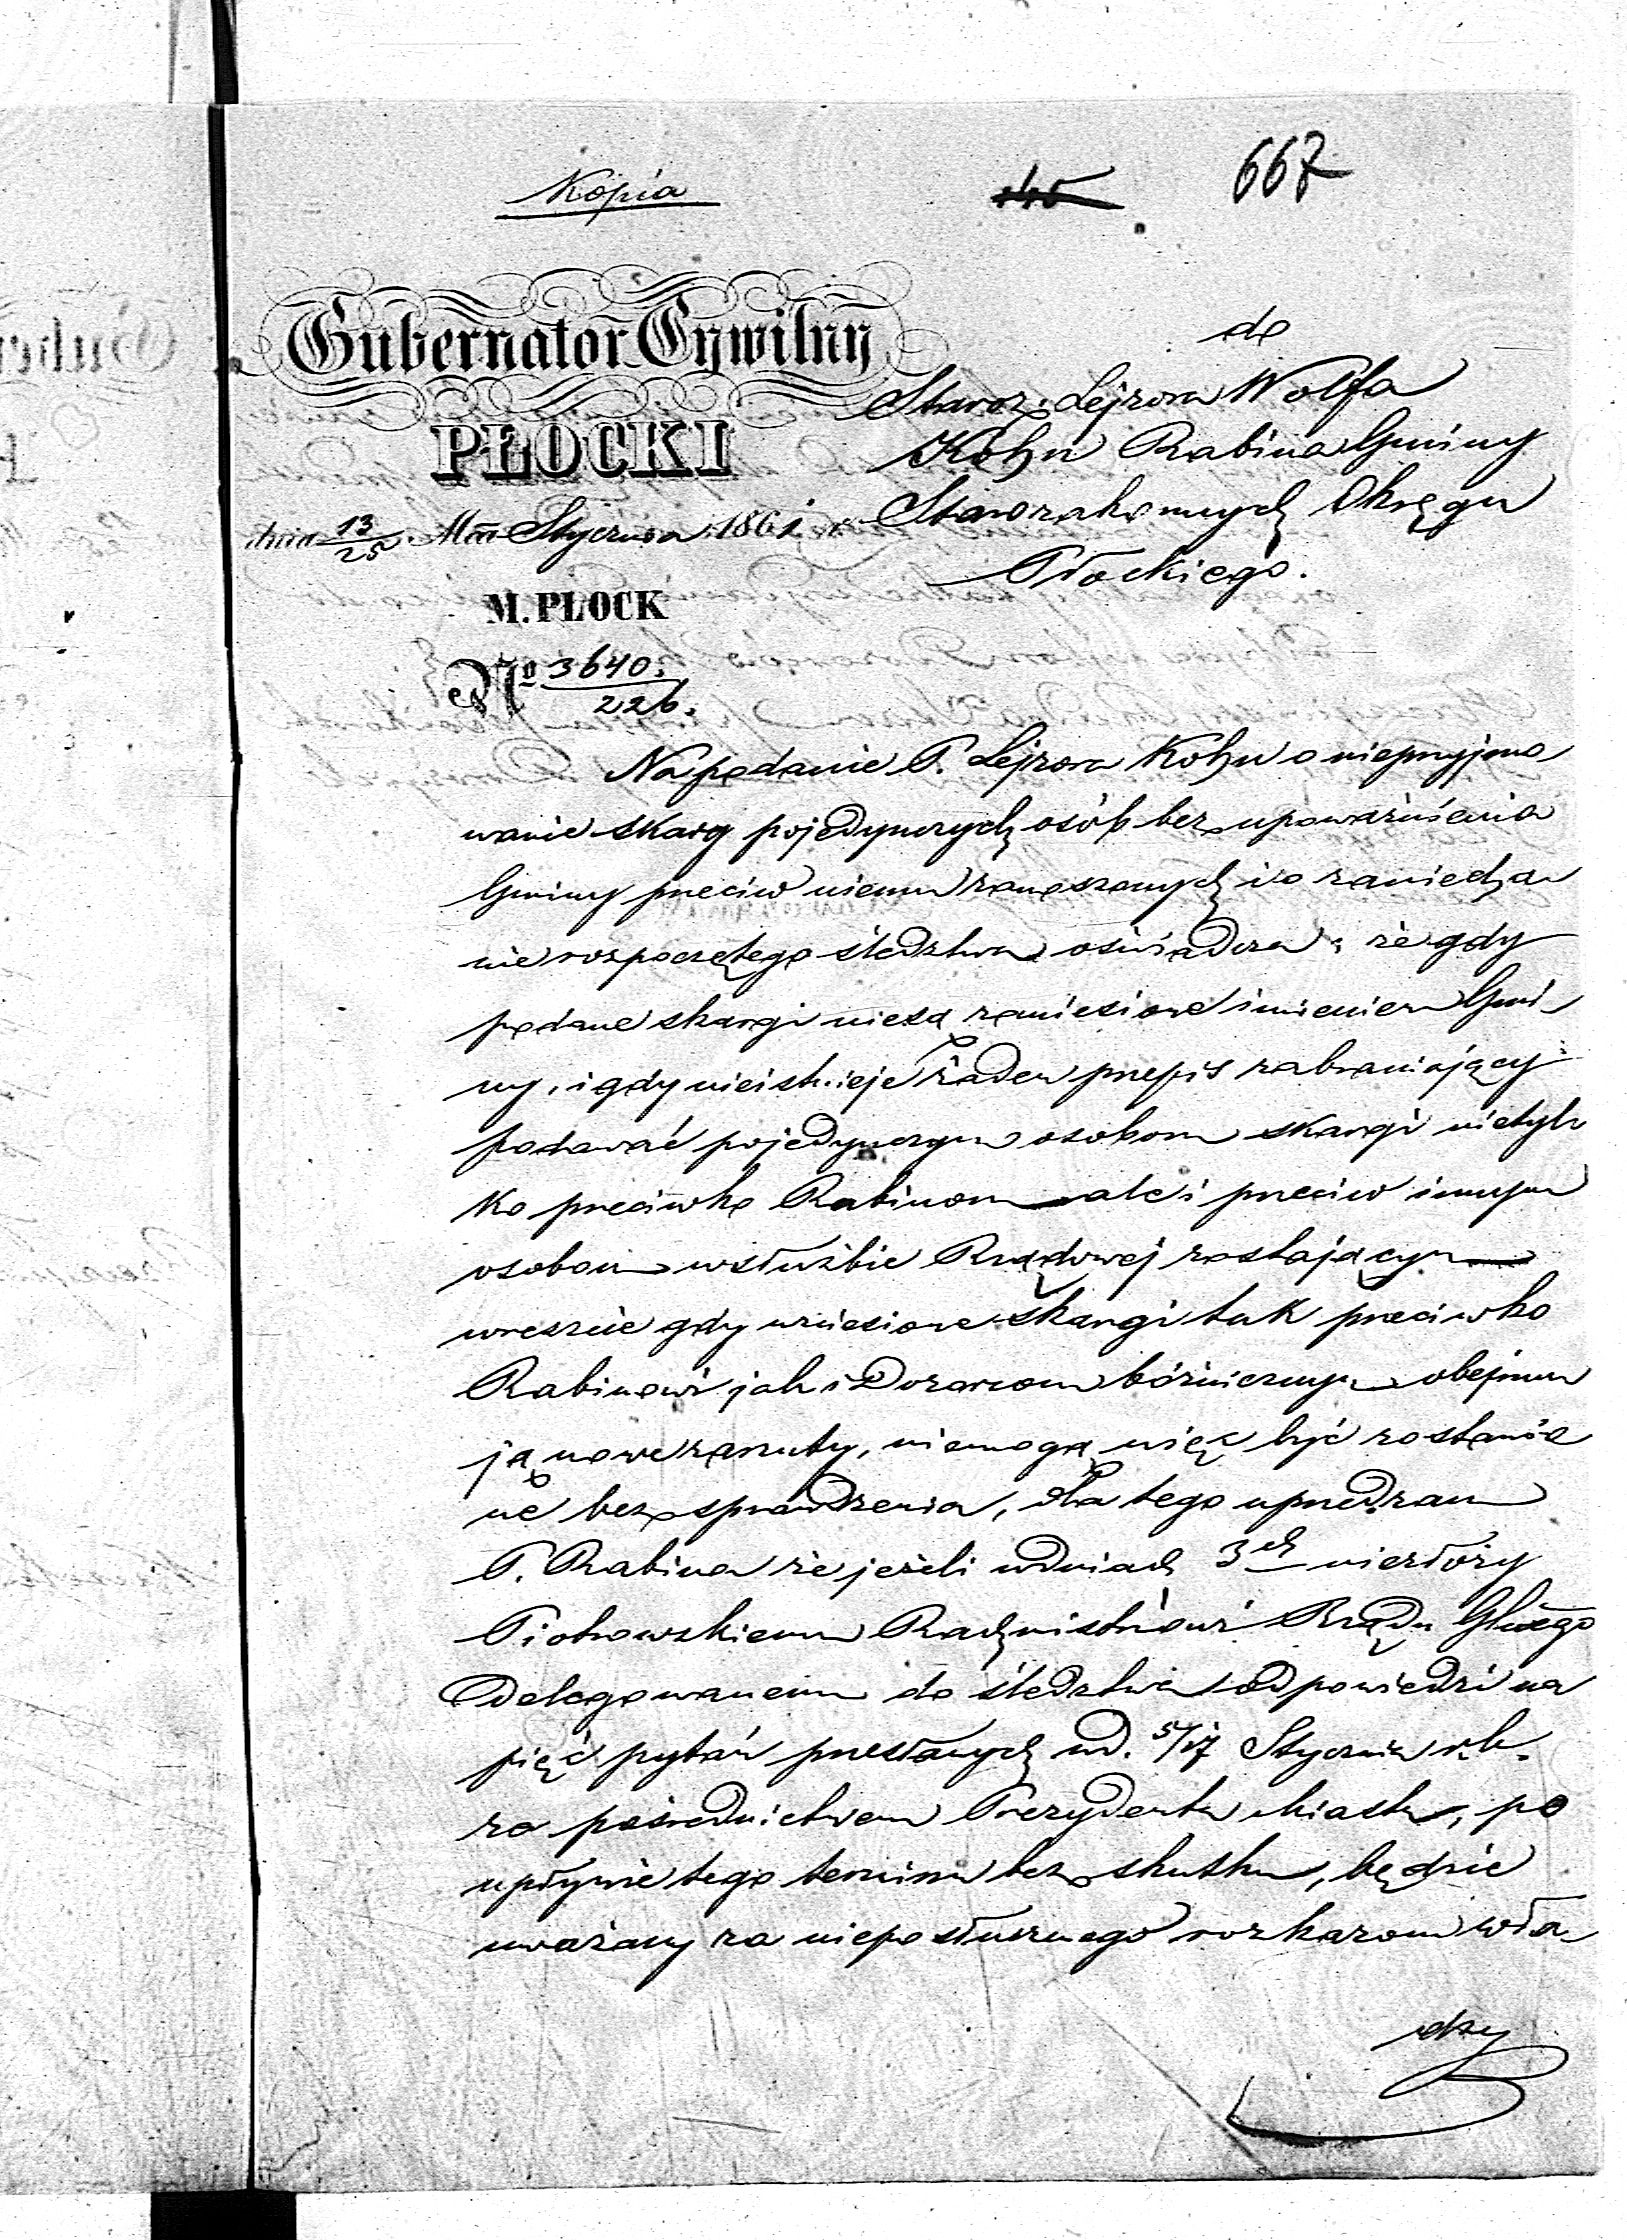 Kopia
667
Gubernator Cywilny
PŁOCKI
dnia 13/25 Mca Stycznia 1861 r.
M. PŁOCK
№ 3640./226.
do
Staroz. Lejzora Wolfa
Kohn Rabina Gminy
Starozakonnych Okręgu
Płockiego.
Na podanie P. Lejzora Kohn o nieprzyjmo
wanie skarg pojedynczych osób bez upoważnienia
Gminy przeciw niemu zanoszonych i o zaniecha
nie rozpoczętego śledztwa oświadcza, że gdy
podane skargi niesą zaniesione imieniem Gmi
ny, i gdy nieistnieje żaden przepis zabraniający
podawać pojedynczym osobom skargi nietyl
ko przeciwko Rabinom ale i przeciw innym
osobom wsłużbie Rządowej zostającym
wreszcie gdy wniesione skargi tak przeciwko
Rabinowi jak i Dozorcom bóżniczym obejmu
ją nowe zarzuty, niemogą więc być zostawio
ne bez sprawdzenia, dla tego uprzedzam
P. Rabina że jeżeli wdniach 3ch niezłoży
Piotrowskiemu Rachmistrzowi Rządu Głnego
Delegowanemu do śledztwa odpowiedzi na
pięć pytań przesłanych md. 5/17 Stycznia r.b.
za pośrednictwem Prezydenta Miasta, po
upływie tego terminu bez skutku, będzie
uważany za nieposłusznego rozkazom wła
dzy